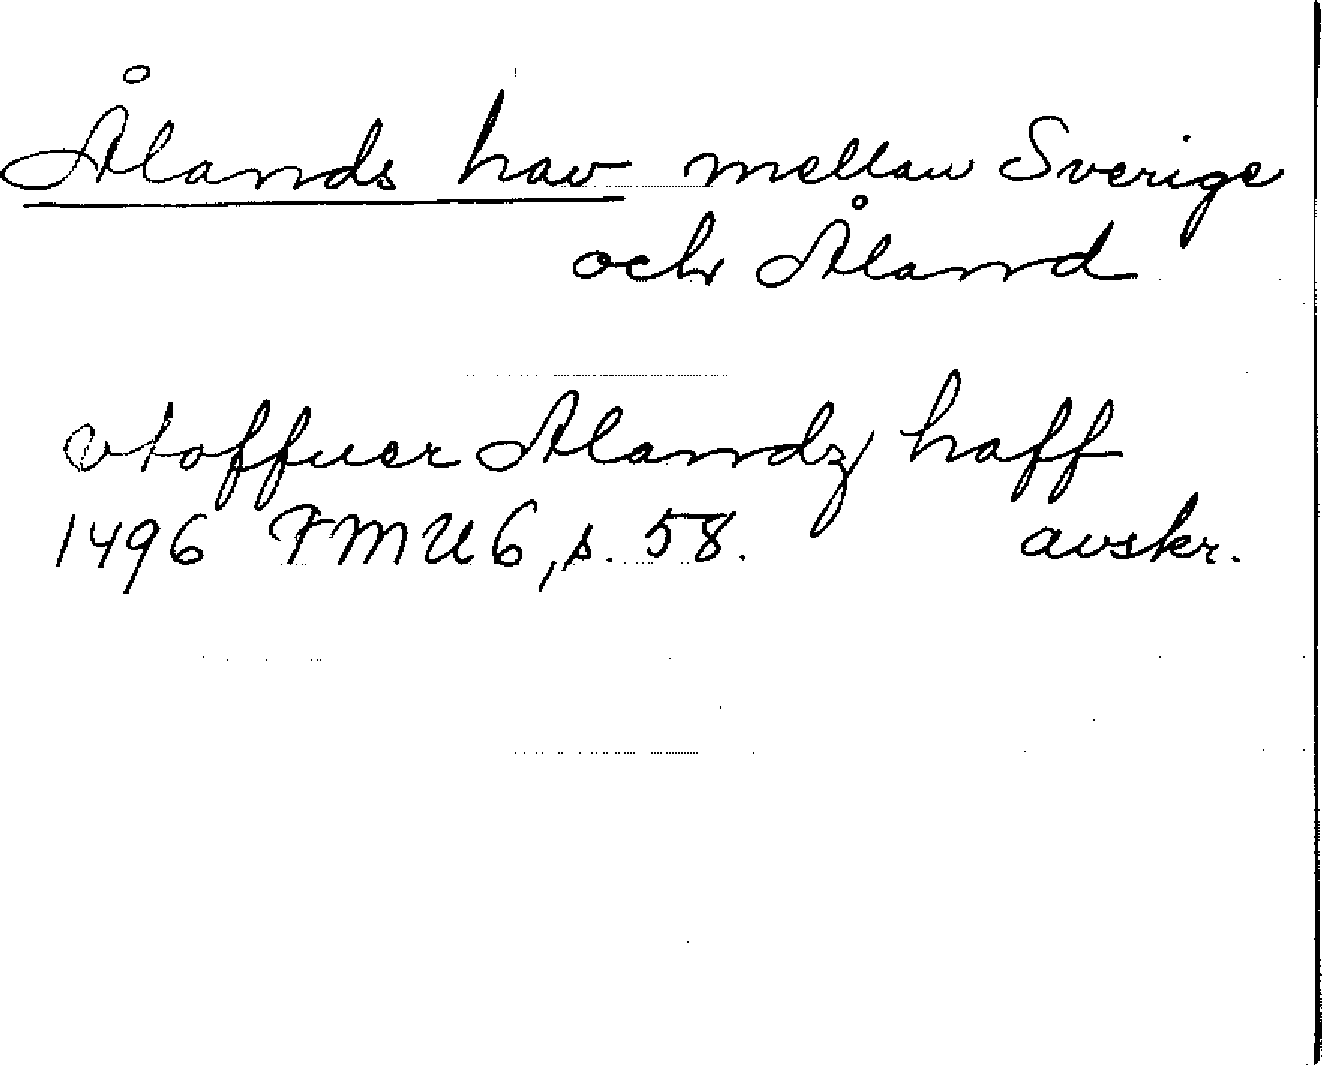 Ålands hav mellan Sverige
och Åland
vtoffuer Alandz haff
1496 FMU 6, s. 58. avskr.